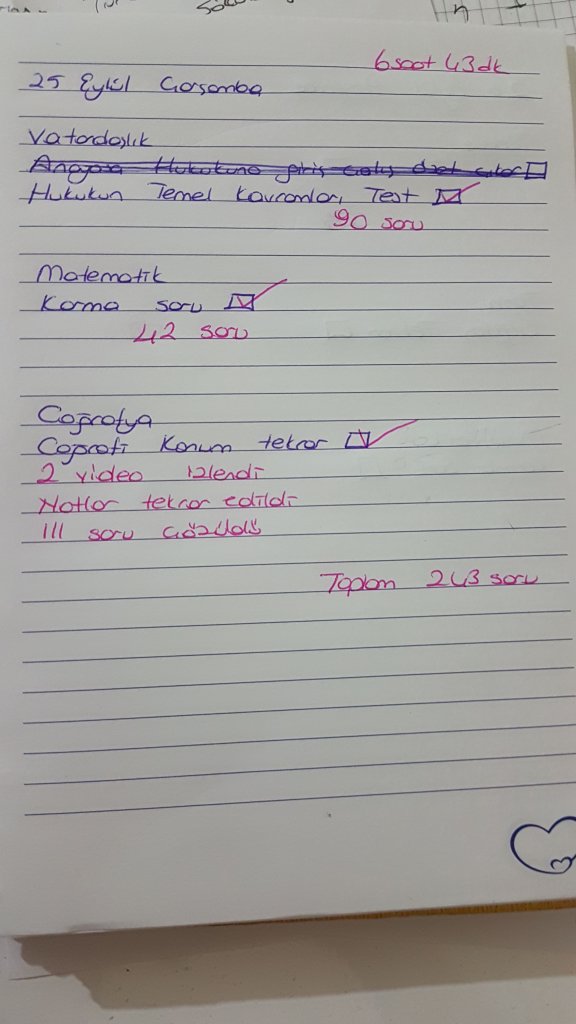 6 saat 43 dk
25 Eylül Çarşamba
Vatandaşlık
Anayasa Hukukuna giriş özet
Hukukun Temel Kavramları Test
90 soru
Matematik
Karma soru
42 soru
Coğrafya
Coğrafi Konum tekrar
2 video izlendi
Notlar tekrar edildi
111 soru çözüldü
Toplam 243 soru